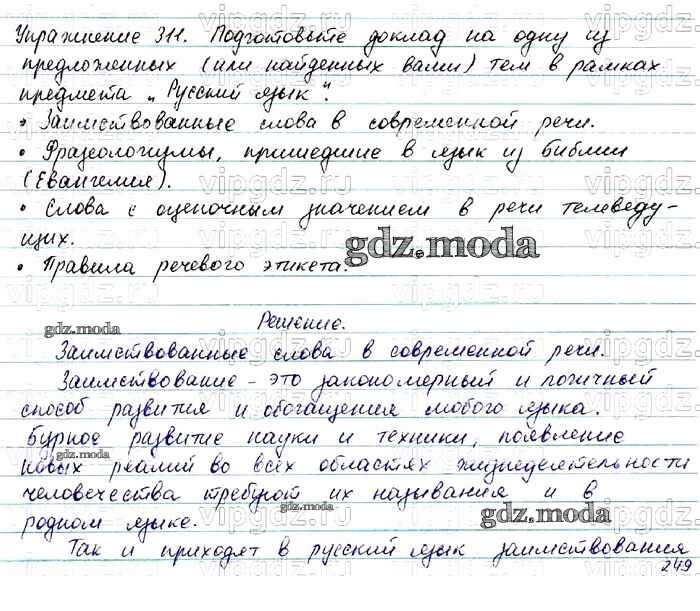 Упражнение 311. Подготовьте доклад на одну из
предложенных (или найденных вами) тем в рамках
предмета „Русский язык".
• Заимствованные слова в современной речи.
• Фразеологизмы, пришедшие в язык из библии
(Евангелия).
• Слова с оценочным значением в речи телеведу-
щих.
gdz.moda
• Правила речевого этикета.
Решение.
gdz.moda
Заимствованные слова в современной речи.
Заимствование - это закономерный и логичный
способ развития и обогащения любого языка.
Бурное развитие науки и техники, появление
gdz.moda
новых реалий во всех областях жизнедеятельности
человечества требуют их называния и в
родном языке.
gdz.moda
Так и приходят в русский язык заимствования
249
vipgdz.ru